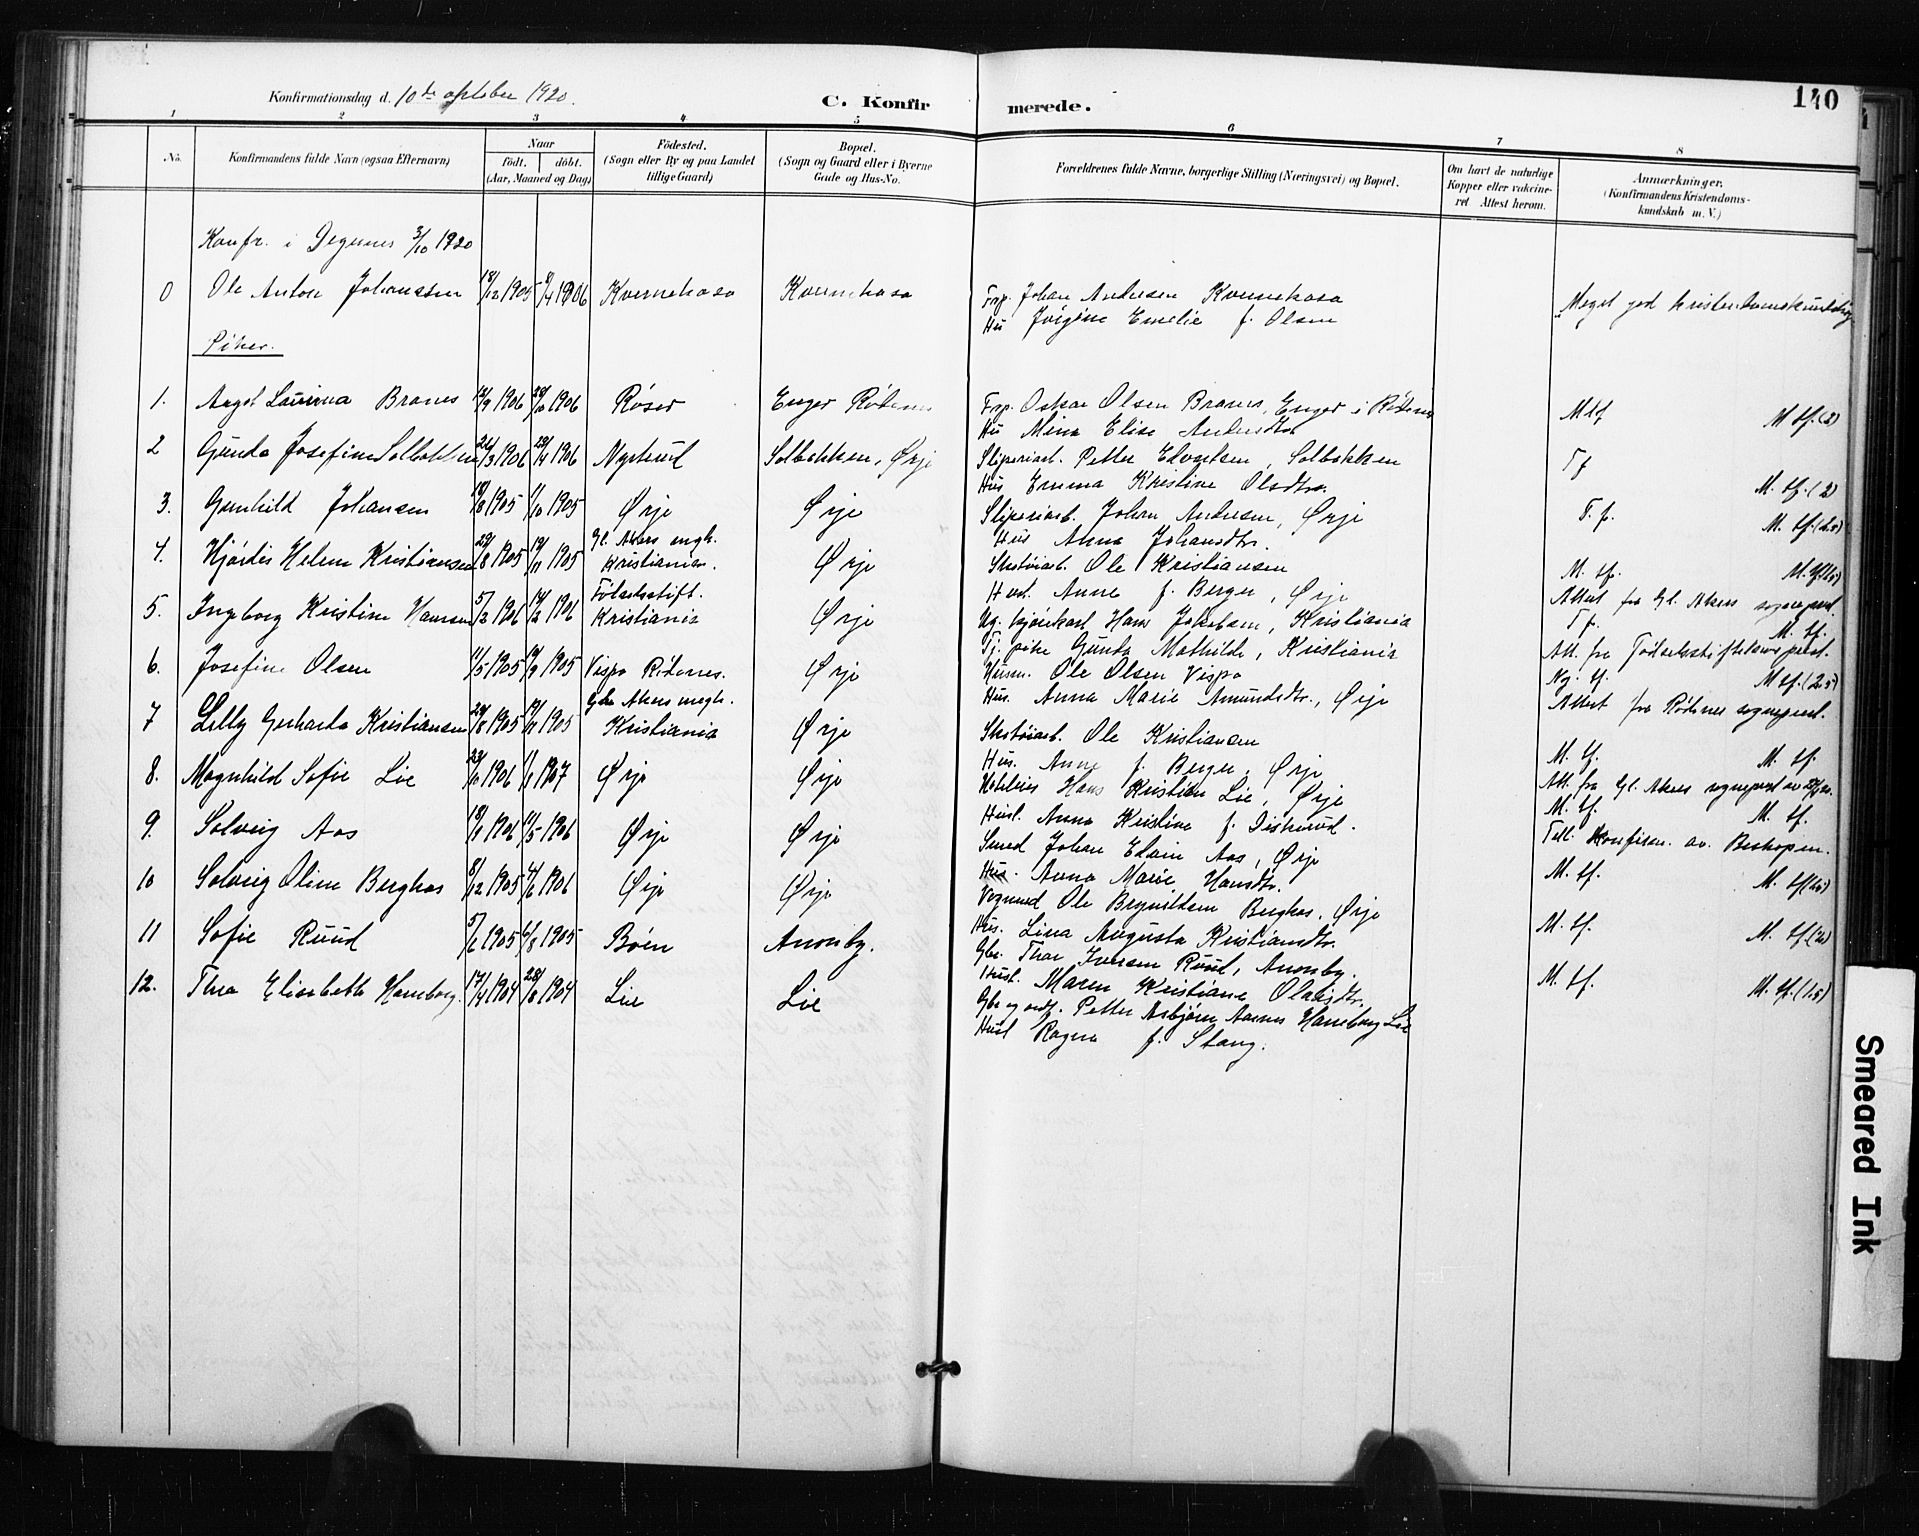 140
Konfirmationsdag d. 10de oktober 1920.
C. Konfirmerede.
1 2 3 4 5 6 7 8
No.
Konfirmandens fulde Navn (ogsaa Efternavn)
Naar
født. døbt.
(Aar, Maaned og Dag)
Fødested.
(Sogn eller By og paa Landet
tillige Gaard)
Bopæl.
(Sogn og Gaard eller i Byerne
Gade og Hus-No.
Forældrenes fulde Navne, borgerlige Stilling (Næringsvei) og Bopæl.
Om havt de naturlige
Kopper eller vakcine-
ret Attest herom.
Anmærkninger.
(Konfirmandens Kristendoms-
kundskab m. V.)
Konfr. i Degernes 3/10 1920
0 Ole Anton Johansen 18/12 1905 8/4 1906 Kvernehaso Kvernehaso Johan Andersen Kvernehaso Meget god kristendomskundskap
Hu Emelie f. Olsen
Piker.
1. Aagot Laurina Branes 12/9 1906 1906 Røser Enger Rødenes Oskar Olsen Branes, Enger i Rødenes Mtf M tf. (2)
Hu Mina Elise Andersdtr
2 Gunda Josefine Solbakken 26/3 1906 1906 Nystuud Solbakken, Ørje Sliperiarb. Petter Edvartsen, Solbakken Tf M. tf. (2)
Hus Emma Kristine Olsdtr.
3. Gunhild Johansen 1905 1/10 1905 Ørje Ørje Sliperiarb. Johan Andersen, Ørje T. f. M. tf. (2.5)
Hus Anna Johansdtr.
4. Hjørdis Helene Kristiansen 29/8 1905 19/11 1905 Gl. Akers mgh. Kristiania. Ørje Ole Kristiansen M. tf. M. tf. (2.5)
Hust. Anne f. Berger, Ørje Attest fra Gl. Akers sogneprest
5. Ingeborg Kristine Hansen 5/2 1906 14/2 1906 Fødselsstift. Kristiania Ørje Ug. kjørekarl Hans Jakobsen, Kristiania Tf. M. tf.
Tj. pike Gunda Mathilde, Kristiania Att. fra Fødselsstiftelsens prest.
6. Josefine Olsen 11/5 1905 1905 Vispo Rødenes. Ørje Husm. Ole Olsen Vispo Ng. tf. M tf. (2.5)
Hus. Anna Marie Amundsdtr., Ørje Attest fra Rødenes sogneprest.
7 Lilly Gerharda Kristiansen 29/8 1905 19/11 1905 Gl. Akers mgh. Kristiania Ørje Ole Kristiansen M. tf. M. tf.
Hus. Anne f. Berger, Ørje Att. fra Gl. Akers sogneprest av
8. Magnhild Sofie Lie 1906 1/1 1907 Ørje Ørje Hans Kristian Lie, Ørje M. tf. M. tf.
Hust. Anna Kristine f. Disterud. Till. Konfirm. av Biskopen.
9. Solveig Aas 19/1 1906 11/5 1906 Ørje Ørje Smed Johan Edvin Aas, Ørje M. tf. M. tf (2.5)
Hus. Anna Marie Hansdtr.
10 Solveig Oline Berghas 8/12 1905 4/6 1906 Ørje Ørje Vognmd Ole Brynildsen Berghas, Ørje M. tf. M. tf (2)
Hus. Lina Augusta Kristiansdtr.
11 Sofie Ruud 5/6 1905 6/8 1905 Bøen Anonby. Gbr. Thor Iversen Ruud, Anonby. M. tf. M. tf. (1.5)
Hust. Maren Kristiane Olausdtr.
12. Thea Elisabeth Haneborg. 17/4 1904 28/8 1904 Lie Lie Gbr og ordf. Petter Asbjørn Aasnes Haneborg Lie
Hust Ragna f. Stang.
Smeared Ink